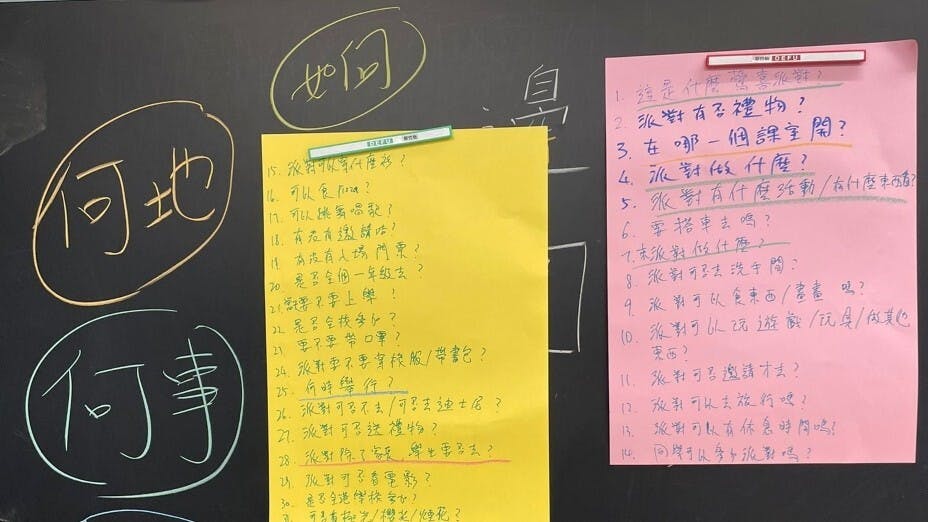 如何
何地
何事
DEFU
15. 派對可以穿什麼衫?
16. 可以食Pizza?
17. 可以跳舞唱歌?
18. 有沒有邀請咭?
19. 有沒有入場門票?
20. 是否全個一年級去?
21. 需要不要上學?
22. 是否全校參加?
23. 要不要帶口罩?
24. 派對要不要穿校服/帶書包?
25. 何時舉行?
26. 派對可否不去/可否去迪士尼?
27. 派對可否送禮物?
28. 派對除了家長,學生要否去?
29. 派對可否看電影?
30. 是否全港學校參加?
31. 可否有極光/櫻花/煙花?
DEFU
1. 這是什麼驚喜派對?
2. 派對有否禮物?
3. 在哪一個課室開?
4. 派對做什麼?
5. 派對有什麼活動/有什麼東西賣?
6. 要搭車去嗎?
7. 來派對做什麼?
8. 派對可否去洗手間?
9. 派對可以食東西/畫畫嗎?
10. 派對可以玩遊戲/玩具/做其他
東西?
11. 派對可否邀請才去?
12. 派對可以去旅行嗎?
13. 派對可以有休息時間嗎?
14. 同學可以參加派對嗎?